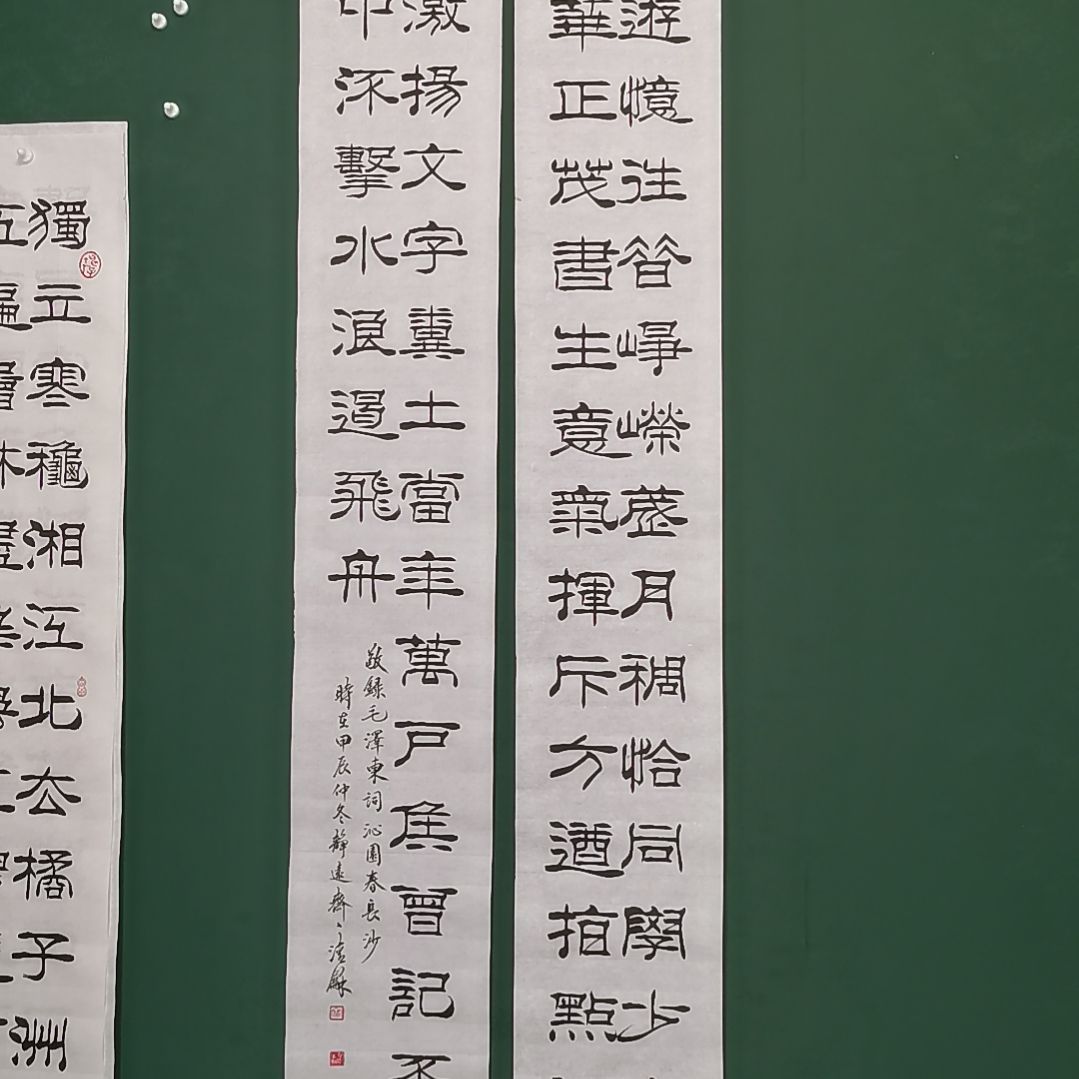 遊憶往昔崢嶸歲月稠恰同學少
華正茂書生意氣揮斥方遒指點
激揚文字糞土當年萬戶侯曾記不
中流擊水浪遏飛舟
敬録毛澤東詞沁園春長沙
時在甲辰仲冬靜遠齋
獨立寒穐湘江北去橘子洲